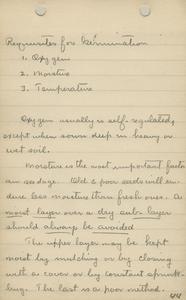 Requisites for Germination
1. Oxygen
2. Moisture
3. Temperature
Oxygen usually is self-regulated,
except when sown deep in heavy or
wet soil.
Moisture is the most important factor
in seedage. Old & poor seeds will en-
dure less moisture than fresh ones. A
moist layer over a dry sub-layer
should always be avoided
The upper layer may be kept
moist by mulching or by closing
with a cover or by constant sprink-
ling. The last is a poor method.